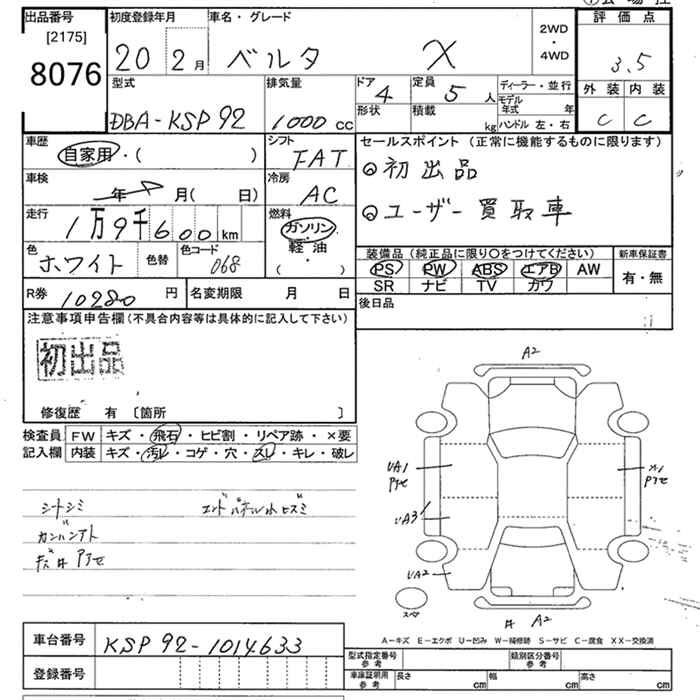 出品番号
[2175]
8076
初度登録年月
20 2月
車名・グレード
ベルタ X
2WD
・
4WD
評価点
3.5
外装 内装
C C
型式
DBA-KSP92
排気量
1000 cc
ドア 4
定員 5 人
形状
積載 kg
ディーラー・並行
モデル年式 年
ハンドル 左・右
車歴
自家用・( )
シフト
FAT
車検
年 月( 日)
冷房
AC
走行
1万9千600km
燃料
ガソリン・
軽・油
( )
色
ホワイト
色替
色コード
068
セールスポイント(正常に機能するものに限ります)
◎初出品
◎ユーザー買取車
装備品(純正品に限り〇をつけてください)
新車保証書
PS PW ABS エアB AW
SR ナビ TV カワ
有・無
R券 10280 円
名変期限 月 日
後日品
注意事項申告欄(不具合内容等は具体的に記入して下さい)
初出品
修復歴 有 〔箇所 〕
検査員
記入欄
FW キズ・飛石・ヒビ割・リペア跡・×要
内装 キズ・汚レ・コゲ・穴・スレ・キレ・破レ
シートシミ
エンドパネル小ヒズミ
カンバンアト
キズ#アセ
A2
UA1
アセ
アセ
UA3
UA2
スペア
# A2
A-キズ E-エクボ U-凹み W-補修跡 S-サビ C-腐食 XX-交換済
車台番号
KSP92-1014633
登録番号
型式指定番号
参考
類別区分番号
参考
車庫証明用
参考
長さ cm
幅 cm
高さ cm